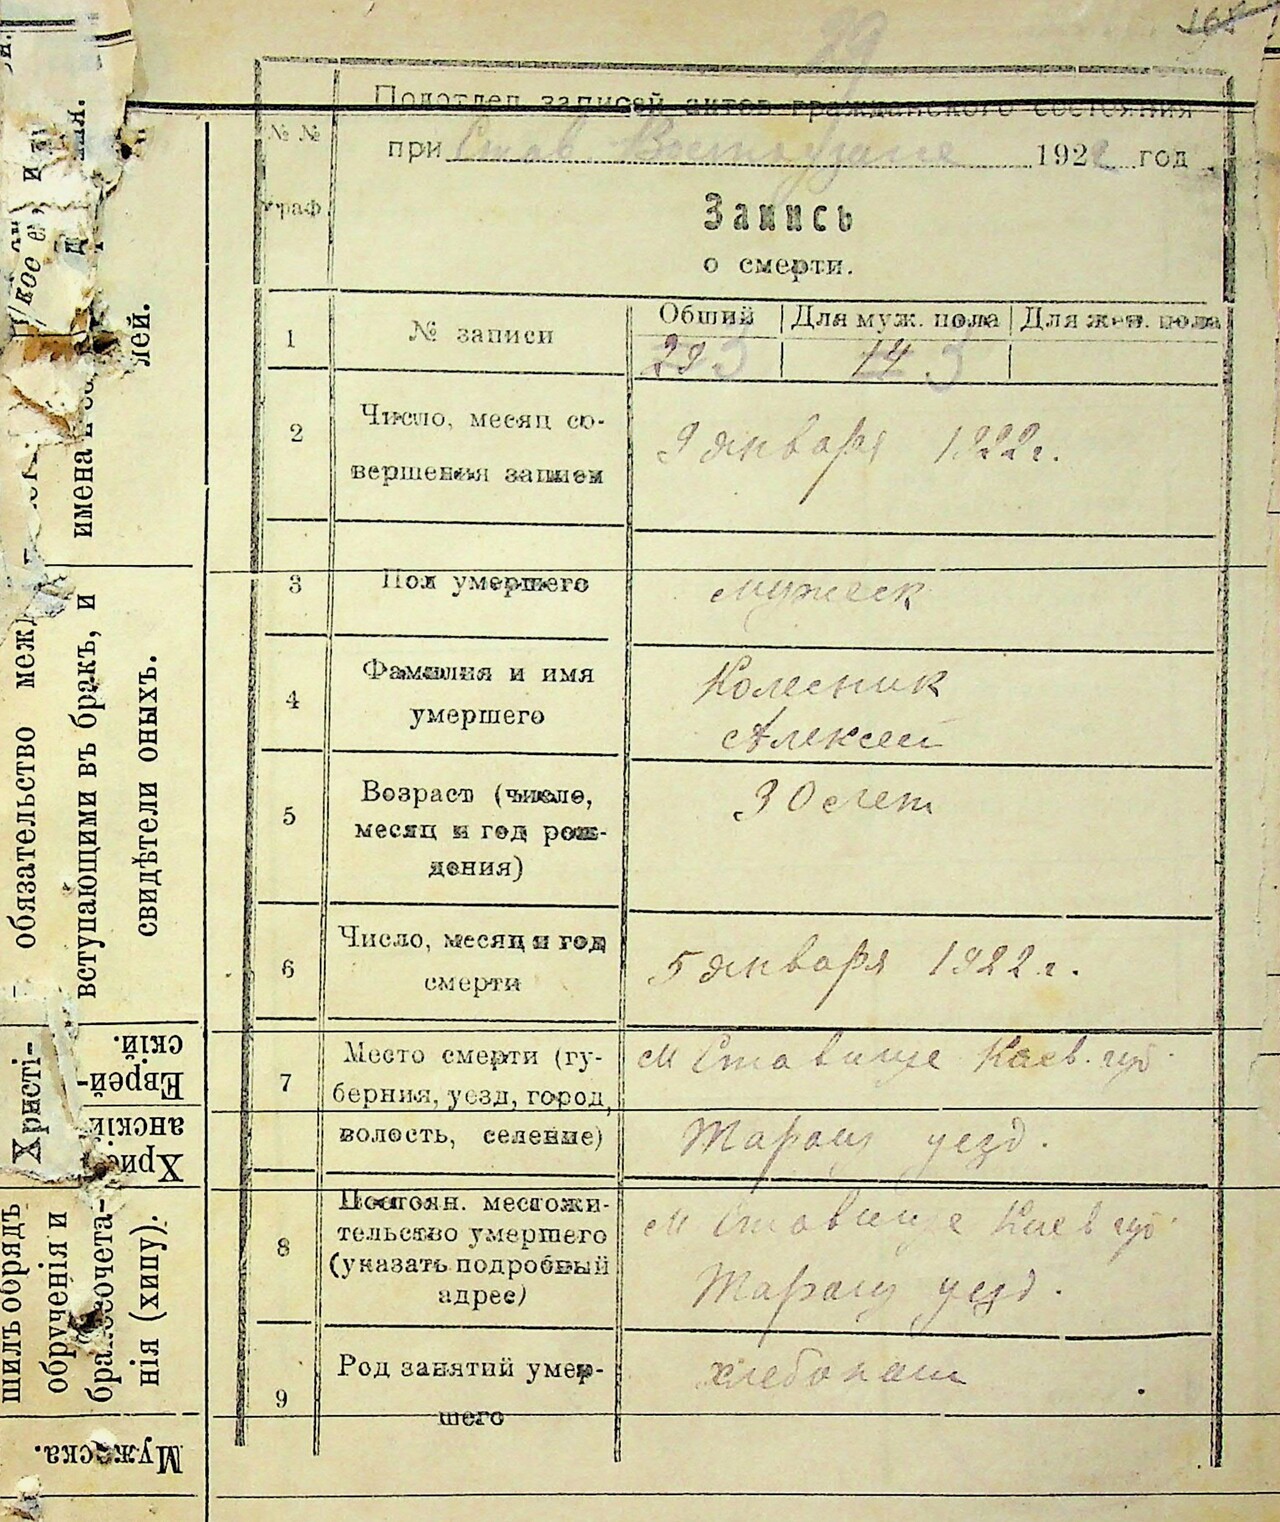 Подотдел записей актов гражданского состояния
при Став. 1922 год
№ №
граф
Запись
о смерти.
1
№ записи
Обший
Для муж. пола
Для жен. пола
29 3
14 3
2
Число, месяц со-
вершения записи
9 января 1922 г.
3
Пол умершего
мужеск
4
Фамилия и имя
умершего
Колесник
Алексей
5
Возраст (число,
месяц и год рож-
дения)
30 лет
6
Число, месяц и год
смерти
5 января 1922 г.
7
Место смерти (гу-
берния, уезд, город,
волость, селение)
м Ставище Киев. губ.
Таращ уезд.
8
Постоян. местожи-
тельство умершего
(указать подробный
адрес)
м Ставище Киев губ.
Таращ уезд.
9
Род занятий умер-
шего
хлебопаш
имена и
лей.
обязательство меж
вступающими въ бракъ, и
свидѣтели оныхъ.
Христі-
Еврей-
скій.
Хрис
анскій
шилъ обрядъ
обрученія и
бракосочета-
нія (хипу).
Мужеска.